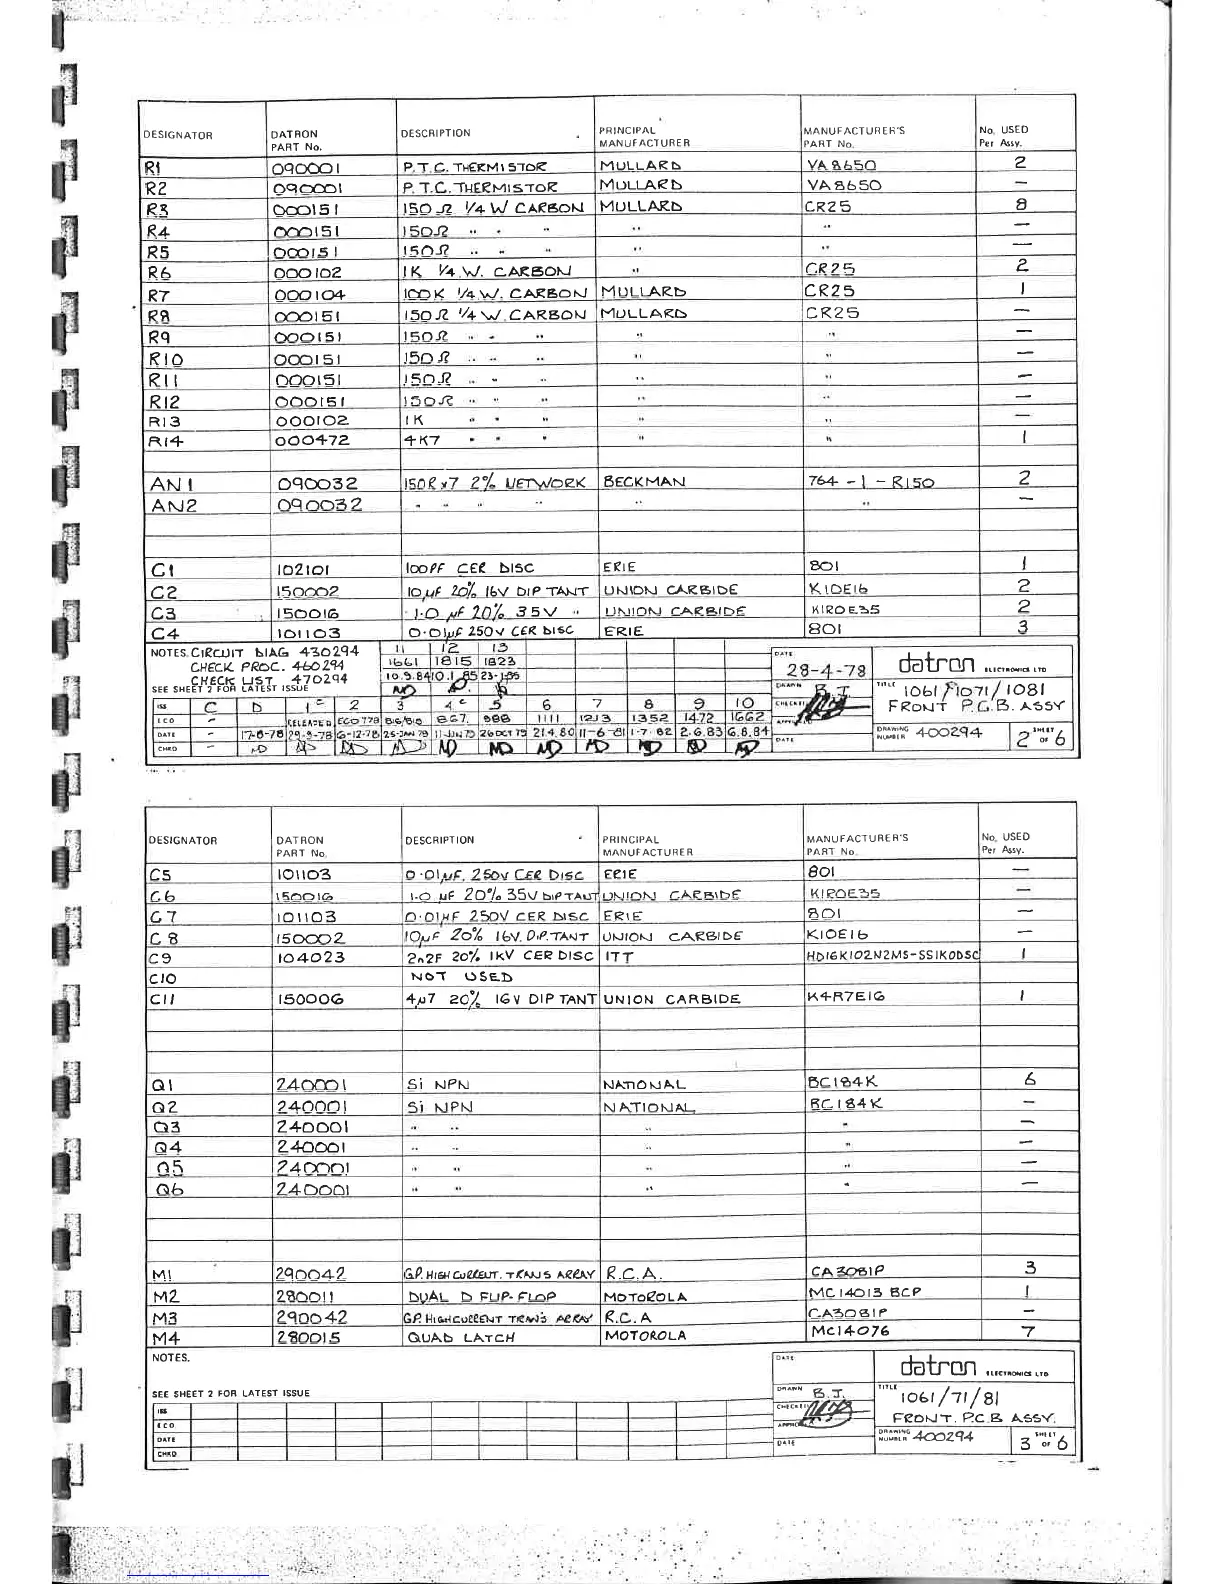 DESIGNATOR DATRON PART No. DESCRIPTION PRINCIPAL MANUFACTURER MANUFACTURER'S PART No. No. USED Per Assy.
R1 090001 P.T.C. THERMISTOR MULLARD VA8650 2
R2 090001 P.T.C. THERMISTOR MULLARD VA8650 —
R3 000151 150Ω 1/4 W CARBON MULLARD CR25 8
R4 000151 150Ω " " " " " —
R5 000151 150Ω " " " " " —
R6 000102 1K 1/4.W. CARBON " CR25 2
R7 000104 100K 1/4 W. CARBON MULLARD CR25 1
R8 000151 150Ω 1/4 W. CARBON MULLARD CR25 —
R9 000151 150Ω " " " " " —
R10 000151 150Ω " " " " " —
R11 000151 150Ω " " " " " —
R12 000151 150Ω " " " " " —
R13 000102 1K " " " " " —
R14 000472 4K7 " " " " " 1
AN1 090032 150R x7 2% NETWORK BECKMAN 764 - 1 - R150 2
AN2 090032 " " " " " " —
C1 102101 100PF CER DISC ERIE 801 1
C2 150002 10µF 20% 16V DIP TANT UNION CARBIDE K10E16 2
C3 150016 1.0 µF 20% 35V " UNION CARBIDE K1R0E35 2
C4 101103 0.01µF 250V CER DISC ERIE 801 3
NOTES. CIRCUIT DIAG 430294
CHECK PROC. 460294
CHECK LIST 470294
SEE SHEET 2 FOR LATEST ISSUE
11 12 13
1661 1815 1823
10.9.84
ISS C D 1 2 3 4 5 6 7 8 9 10
ECO - RELEASED ECO 778 867. 988 1111 1213 1352 1472 1662
DATE - 17-8-78 29-9-78 6-12-78 25-JAN 79 11-JUN 79 26 OCT 79 21.4.80 11-6-81 1-7-82 2.6.83 6.8.84
CHKD -
DATE 28-4-78
DRAWN B.J.
CHECKED
APPROVED
DATE
datron ELECTRONICS LTD
TITLE 1061/1071/1081
FRONT P.C.B. ASSY
DRAWING NUMBER 400294 SHEET 2 OF 6
DESIGNATOR DATRON PART No. DESCRIPTION PRINCIPAL MANUFACTURER MANUFACTURER'S PART No. No. USED Per Assy.
C5 101103 0.01µF. 250V CER DISC ERIE 801 —
C6 150016 1.0 µF 20% 35V DIP TANT UNION CARBIDE K1R0E35 —
C7 101103 0.01µF 250V CER DISC ERIE 801 —
C8 150002 10µF 20% 16V. DIP. TANT UNION CARBIDE K10E16 —
C9 104023 2n2F 20% 1KV CER DISC ITT HD16K102N2MS-SS1KODSC 1
C10 NOT USED
C11 150006 4µ7 20% 16V DIP TANT UNION CARBIDE K4R7E16 1
Q1 240001 Si NPN NATIONAL BC184K 6
Q2 240001 Si NPN NATIONAL BC184K —
Q3 240001 " " " " —
Q4 240001 " " " " —
Q5 240001 " " " " —
Q6 240001 " " " " —
M1 290042 G.P. HIGH CURRENT. TRANS ARRAY R.C.A. CA3081P 3
M2 280011 DUAL D FLIP-FLOP MOTOROLA MC14013 BCP 1
M3 290042 G.P. HIGH CURRENT TRANS ARRAY R.C.A CA3081P —
M4 280015 QUAD LATCH MOTOROLA MC14076 7
NOTES.
SEE SHEET 2 FOR LATEST ISSUE
ISS
ECO
DATE
CHKD
DATE
DRAWN B.J.
CHECKED
APPROVED
DATE
datron ELECTRONICS LTD
TITLE 1061/71/81
FRONT. P.C.B. ASSY.
DRAWING NUMBER 400294 SHEET 3 OF 6